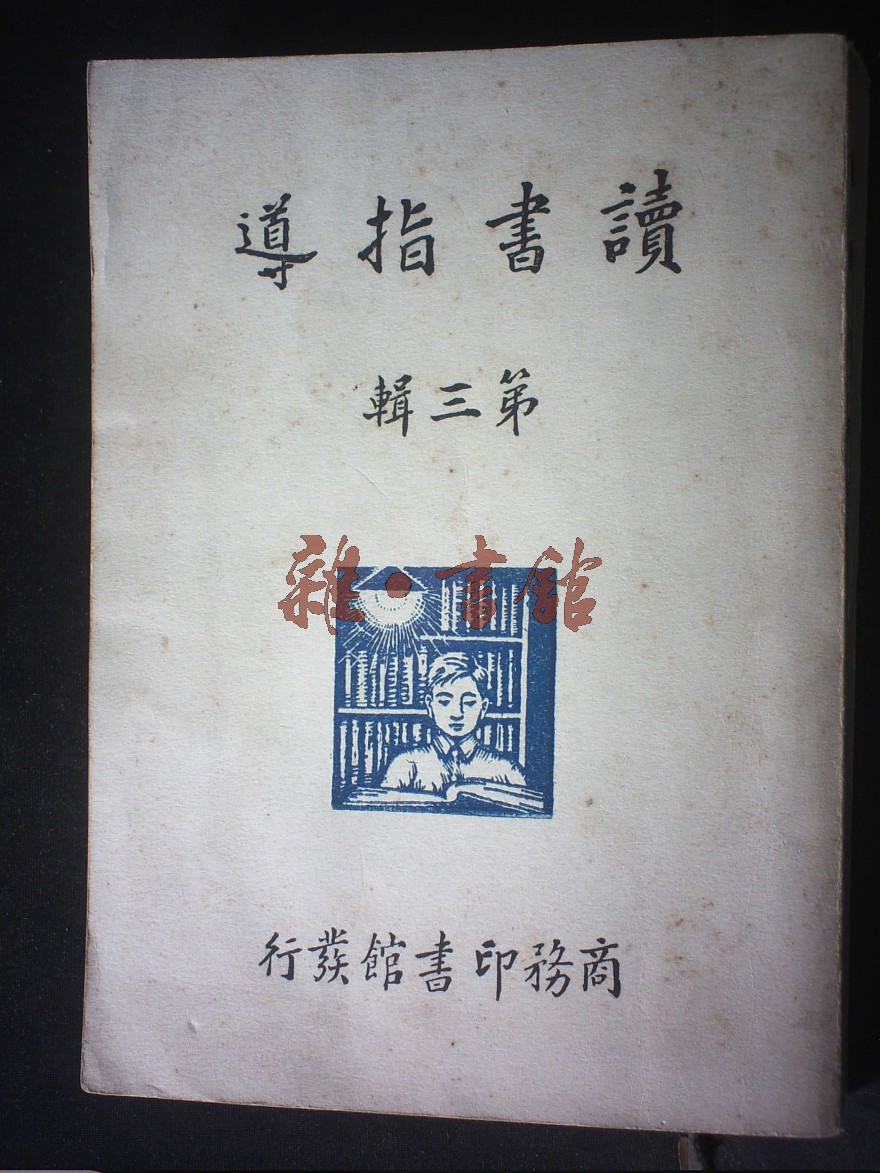 讀書指導
第三輯
雜·書館
商務印書館發行